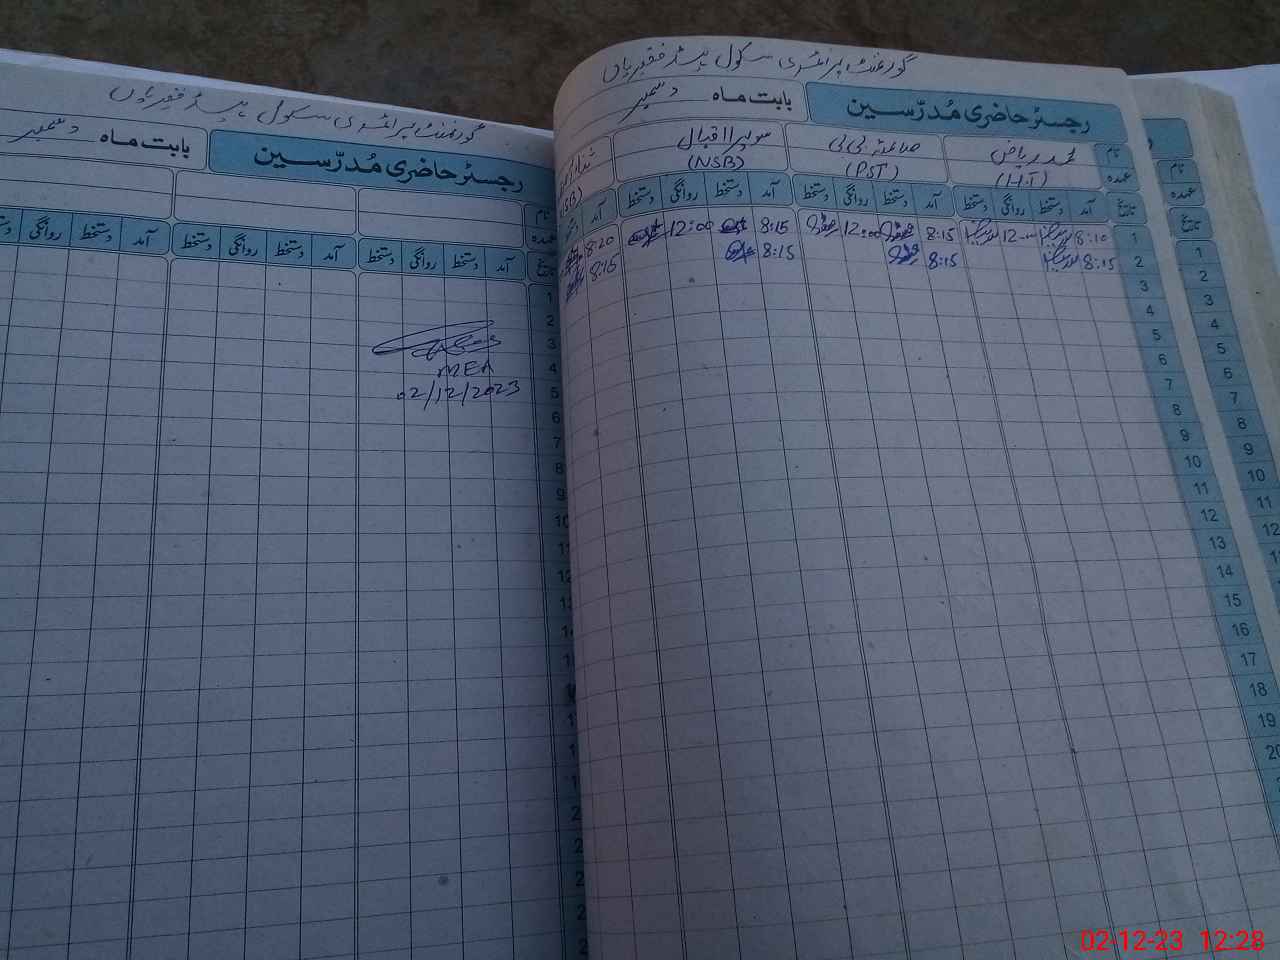 گورنمنٹ پرائمری سکول ہیڈ فقیریاں
رجسٹر حاضری مُدرّسین
بابت ماہ دسمبر
نام محمد ریاض سویرا اقبال
عہدہ (H.T) (PST) (NSB)
تاریخ آمد دستخط روانگی دستخط آمد دستخط روانگی دستخط آمد دستخط روانگی دستخط آمد
1 8:10 12:00 8:15 12:00 8:15 12:00 8:20
2 8:15 8:15 8:15 8:15
3
4
5
6
7
8
9
10
11
12
13
14
15
16
17
18
19
20
نام
عہدہ
تاریخ
1
2
3
4
5
6
7
8
9
10
11
12
گورنمنٹ پرائمری سکول ہیڈ فقیریاں
رجسٹر حاضری مُدرّسین
بابت ماہ دسمبر
نام
عہدہ
تاریخ آمد دستخط روانگی دستخط آمد دستخط روانگی دستخط آمد دستخط روانگی
1
2
3
4
5
6
7
8
9
MEA
02/12/2023
02-12-23 12:28